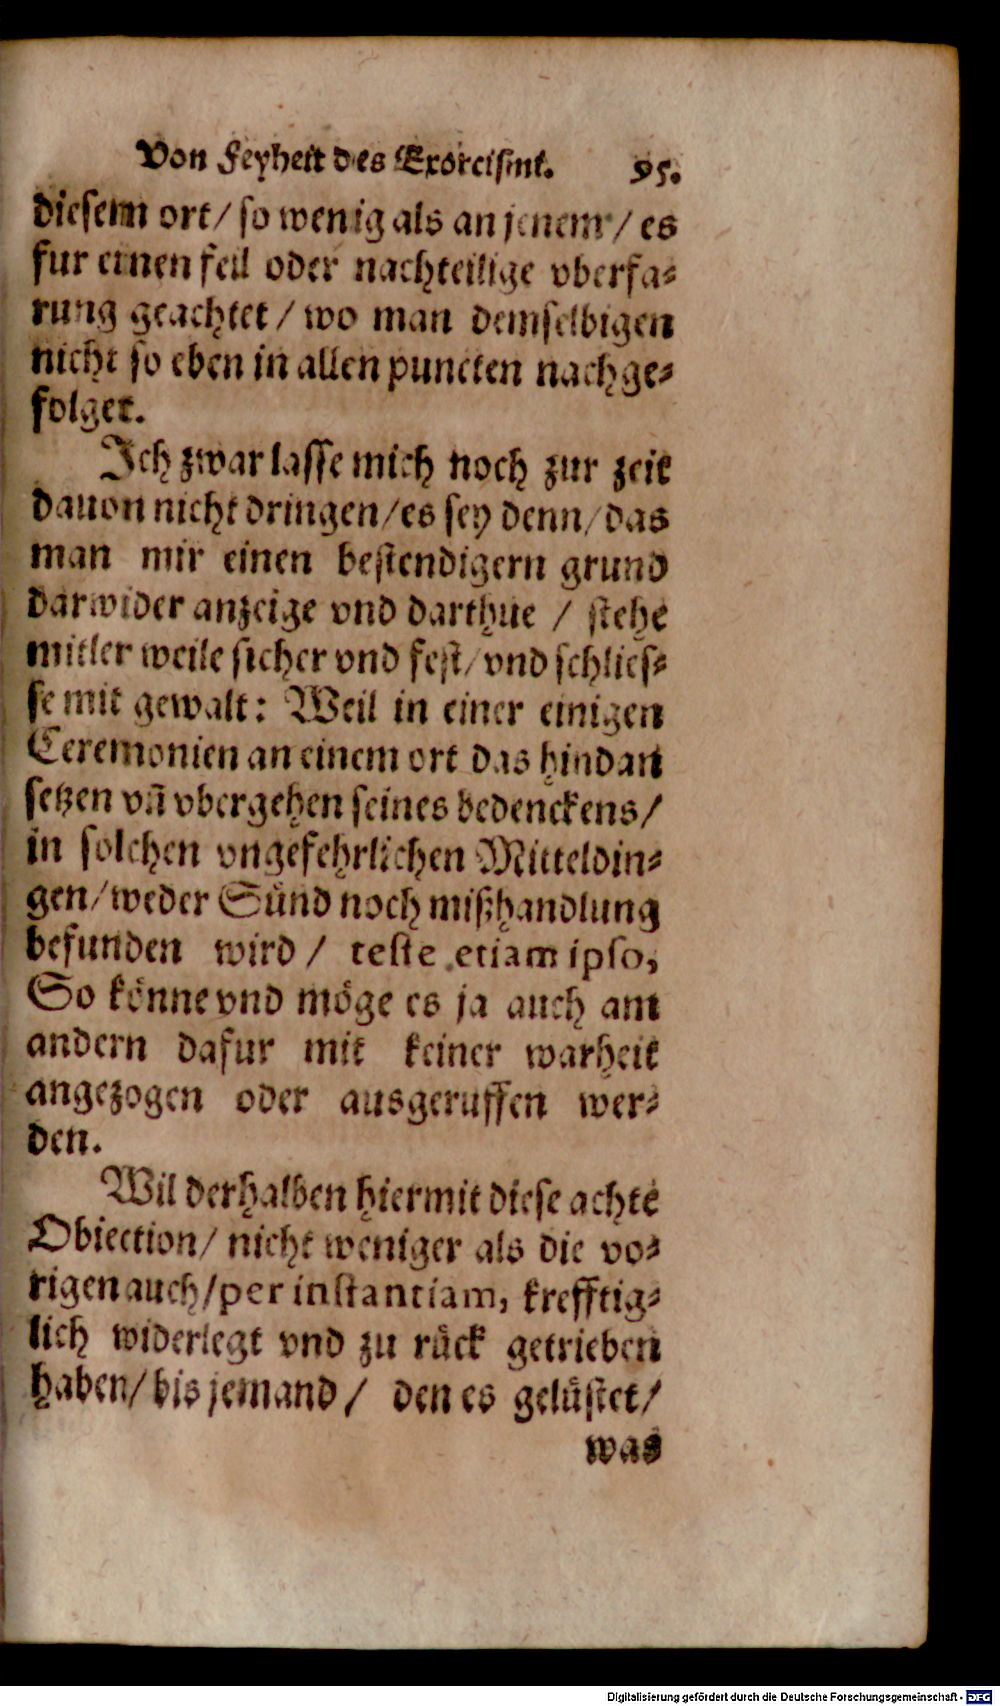 Von Feyheit des Exorcismi. 95.
diesem ort/ so wenig als an jenem/ es
fur einen feil oder nachteilige vberfa-
rung geachtet/ wo man demselbigen
nicht so eben in allen puncten nachge-
folget.
Ich zwar lasse mich noch zur zeit
dauon nicht dringen/ es sey denn/ das
man mir einen bestendigern grund
darwider anzeige vnd darthue / stehe
mitler weile sicher vnd fest/ vnd schlies-
se mit gewalt: Weil in einer einigen
Ceremonien an einem ort das hindan
setzen vñ vbergehen seines bedenckens/
in solchen vngefehrlichen Mitteldin-
gen/ weder Sünd noch mißhandlung
befunden wird/ teste etiam ipso,
So könne vnd möge es ja auch am
andern dafur mit keiner warheit
angezogen oder ausgeruffen wer-
den.
Wil derhalben hiermit diese achte
Obiection/ nicht weniger als die vo-
rigen auch/ per instantiam, krefftig-
lich widerlegt vnd zu rück getrieben
haben/ bis jemand/ den es gelüstet/
was
Digitalisierung gefördert durch die Deutsche Forschungsgemeinschaft - DFG